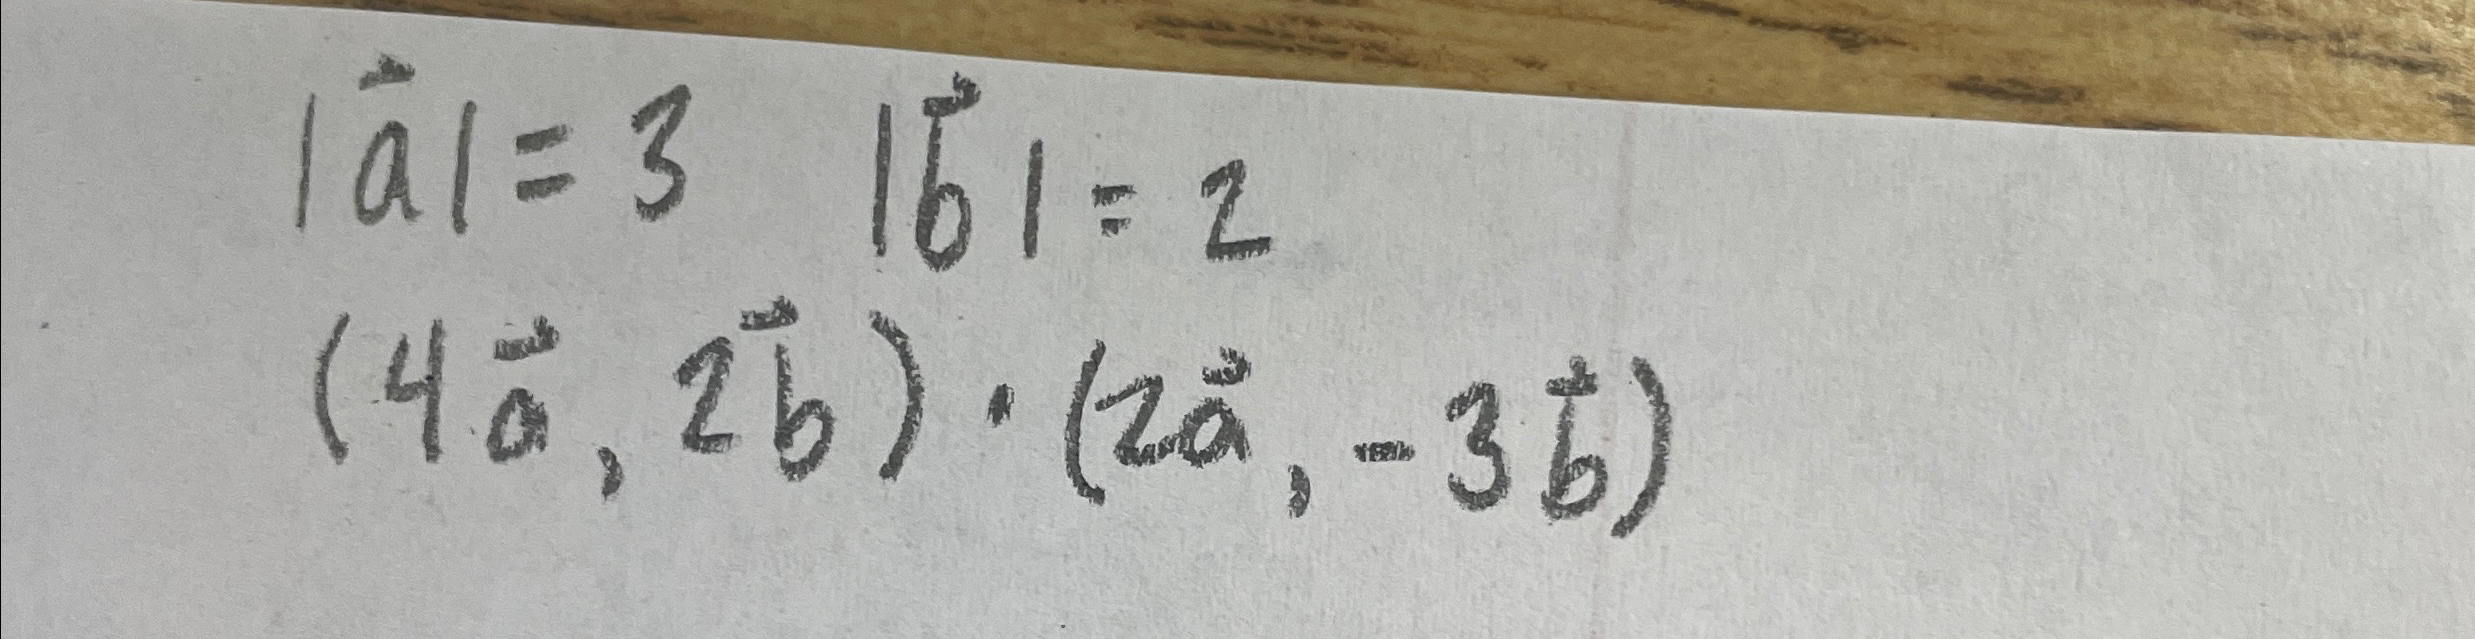 |a⃗| = 3 |b⃗| = 2
(4a⃗, 2b⃗) · (2a⃗, -3b⃗)